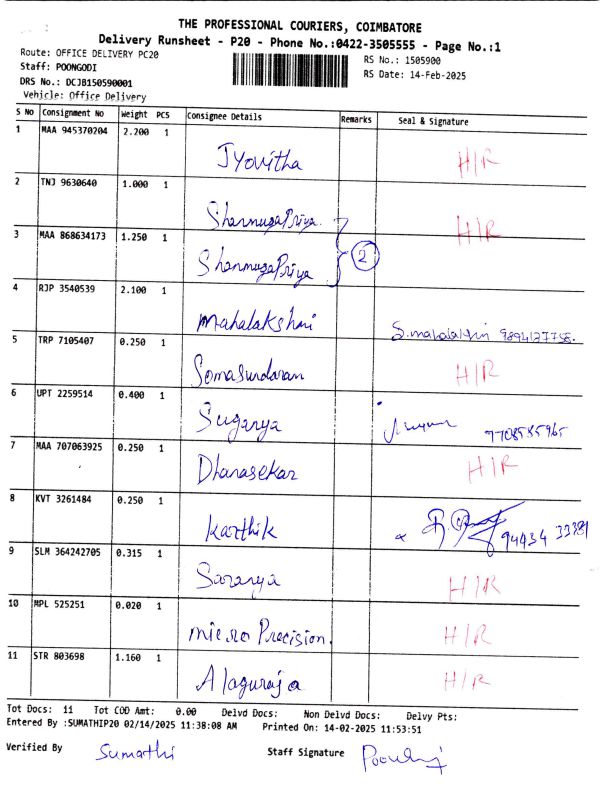 THE PROFESSIONAL COURIERS, COIMBATORE
Delivery Runsheet - P20 - Phone No.:0422-3505555 - Page No.:1
Route: OFFICE DELIVERY PC20
RS No.: 1505900
Staff: POONGODI
RS Date: 14-Feb-2025
DRS No.: DCJB150590001
Vehicle: Office Delivery
S No Consignment No Weight PCS Consignee Details Remarks Seal & Signature
1 MAA 945370204 2.200 1
Jyovitha H/R
2 TNJ 9630640 1.000 1
ShanmugaPriya. H/R
3 MAA 868634173 1.250 1
ShanmugaPriya 2
4 RJP 3540539 2.100 1
Mahalakshmi S.mahalakshmi 9894127755.
5 TRP 7105407 0.250 1
Somasundaram H/R
6 UPT 2259514 0.400 1
Suganya 7708585965
7 MAA 707063925 0.250 1
Dhanasekar H/R
8 KVT 3261484 0.250 1
Karthik 94434 33381
9 SLM 364242705 0.315 1
Saranya H/R
10 MPL 525251 0.020 1
micro Precision. H/R
11 STR 803698 1.160 1
Alaguraja H/R
Tot Docs: 11 Tot COD Amt: 0.00 Delvd Docs: Non Delvd Docs: Delvy Pts:
Entered By :SUMATHIP20 02/14/2025 11:38:08 AM Printed On: 14-02-2025 11:53:51
Verified By Sumathi Staff Signature